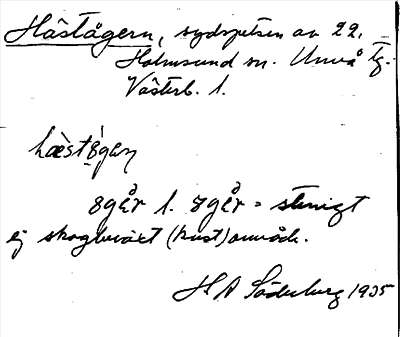 Hästågern, sydspetsen av 22,
Holmsund sn. Umeå tg.
Västerb. l.
hæstǻgɐn
ågår l. ågår = stenigt
ej skogbeväxt (kust)område.
H A Söderberg 1935